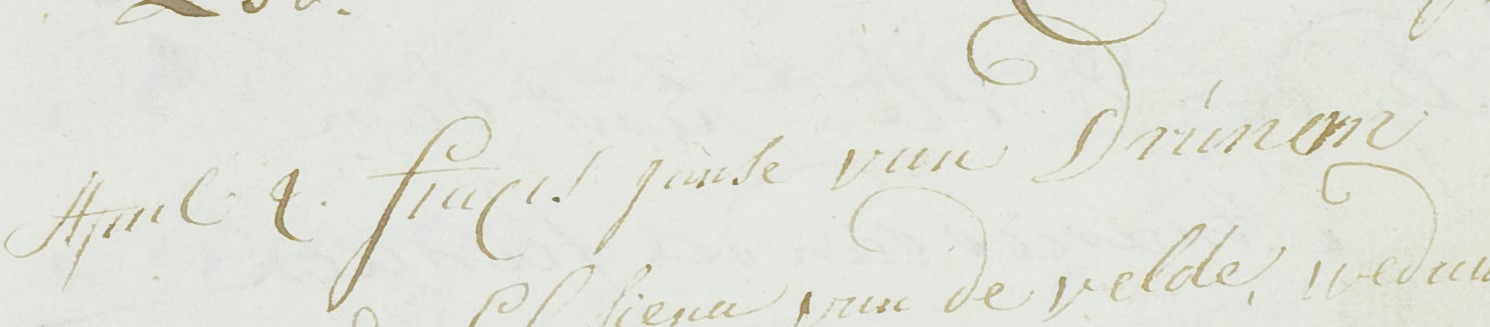 April 2. fraçis janse van Drúnen
van de velde, weduw